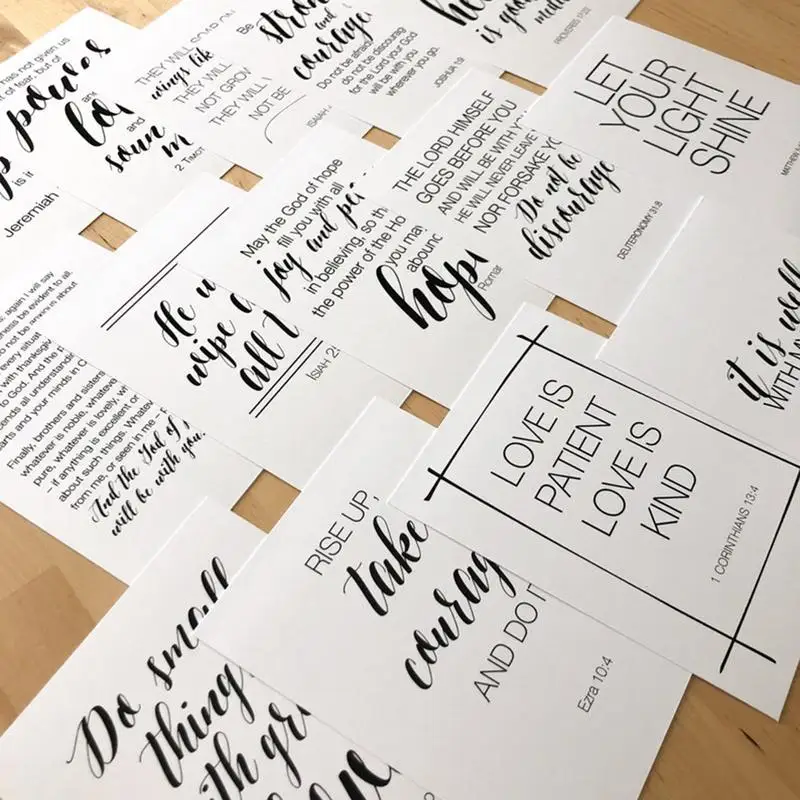 has not given us
of fear, but of
power
and
and
soun
2 TIMOT
is i
Jeremiah
THEY WILL
wings like
THEY WILL
NOT GROW
THEY WILL
NOT BE
ISAIAH
Be
strong
and
courage
Do not be afraid
do not be discourag
for the Lord your God
will be with you
wherever you go.
JOSHUA 1:9
is good
PROVERBS 17:22
LET
YOUR
LIGHT
SHINE
MATTHEW
THE LORD HIMSELF
GOES BEFORE YOU
AND WILL BE WITH YO
HE WILL NEVER LEAVE
NOR FORSAKE YO
Do not be
discourage
DEUTERONOMY 31:8
May the God of hope
fill you with all
joy and pe
in believing, so th
the power of the Ho
you may
abound
hope
Roman
it is well
WITH MY
again I will say
ness be evident to all.
o not be anxious about
every situat
with thanksgiv
to God. And the
cends all understandin
arts and your minds in C
Finally, brothers and sisters
whatever is noble, whatever
pure, whatever is lovely, w
– if anything is excellent or
about such things. Whatev
from me, or seen in me –
And the God of
will be with you.
He w
wipe
all t
ISIAH 2
LOVE IS
PATIENT
LOVE IS
KIND
1 CORINTHIANS 13:4
RISE UP,
take
courag
AND DO IT
Ezra 10:4
Do small
thing
with gr